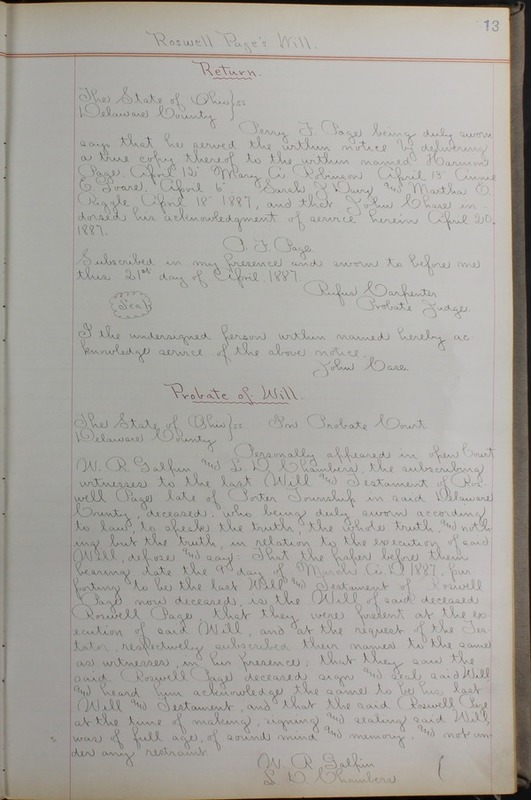 13
Roswell Page's Will.
Return.
The State of Ohio } ss
Delaware County
Perry F. Page being duly sworn
says that he served the within notice by delivering
a true copy thereof to the within named Harmon
Page April 12" Mary A. Robinson April 13" Annie
E. April 6" Sarah J. and Martha E.
April 18" 1887, and that John Chase in-
dorsed his acknowledgment of service herein April 20,
1887.
P. F. Page
Subscribed in my presence and sworn to before me
this 21st day of April 1887
Rufus Carpenter
Seal
Probate Judge.
I the undersigned person within named hereby ac-
knowledge service of the above notice.
John Case.
Probate of Will.
The State of Ohio } ss In Probate Court
Delaware County
Personally appeared in open Court
W. R. Galfin and L. D. Chambers, the subscribing
witnesses to the last Will and Testament of Ros-
well Page late of Porter Township in said Delaware
County, deceased, who being duly sworn according
to law, to speak the truth, the whole truth, and noth-
ing but the truth, in relation to the execution of said
Will, depose and say: That the paper before them
bearing date the 9" day of March A.D. 1887, pur-
porting to be the last Will and Testament of Roswell
Page now deceased, is the Will of said deceased
Roswell Page that they were present at the ex-
ecution of said Will, and at the request of the Tes-
tator, respectively subscribed their names to the same
as witnesses, in his presence; that they saw the
said Roswell Page deceased sign and seal said Will
and heard him acknowledge the same to be his last
Will and Testament, and that the said Roswell Page
at the time of making, signing and sealing said Will,
was of full age, of sound mind and memory, and not un-
der any restraint
W. R. Galfin
L. D. Chambers